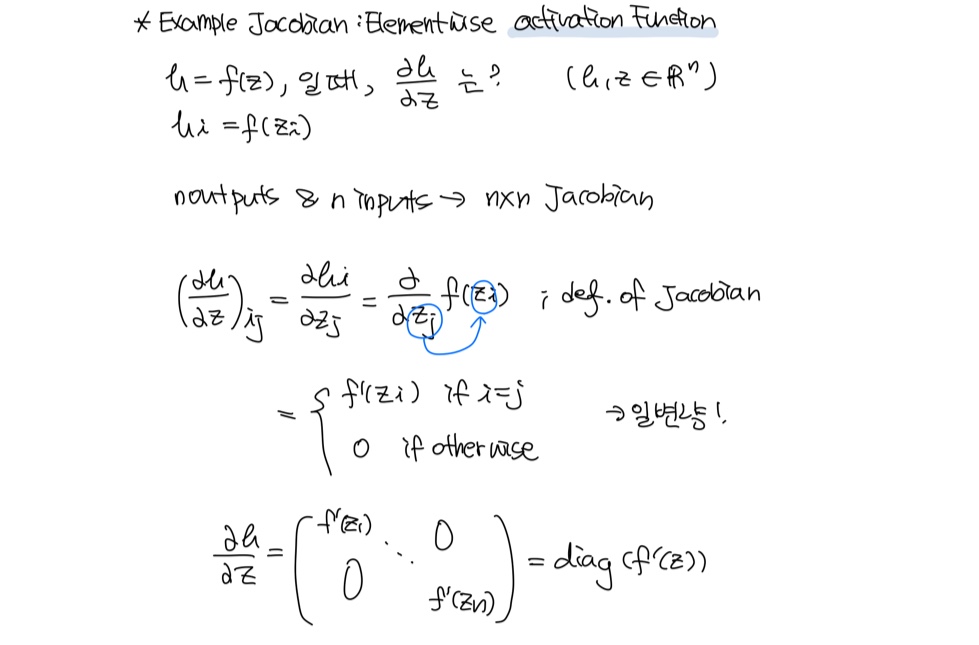 * Example Jacobian : Elementwise activation Function
h = f(z), 일때, ∂h/∂z 는? (h, z ∈ ℝⁿ)
hi = f(zi)
n outputs & n inputs → n×n Jacobian
(∂h/∂z)ij = ∂hi/∂zj = ∂/∂zj f(zi) ; def. of Jacobian
= { f'(zi) if i=j
0 if otherwise → 일변수 미분!